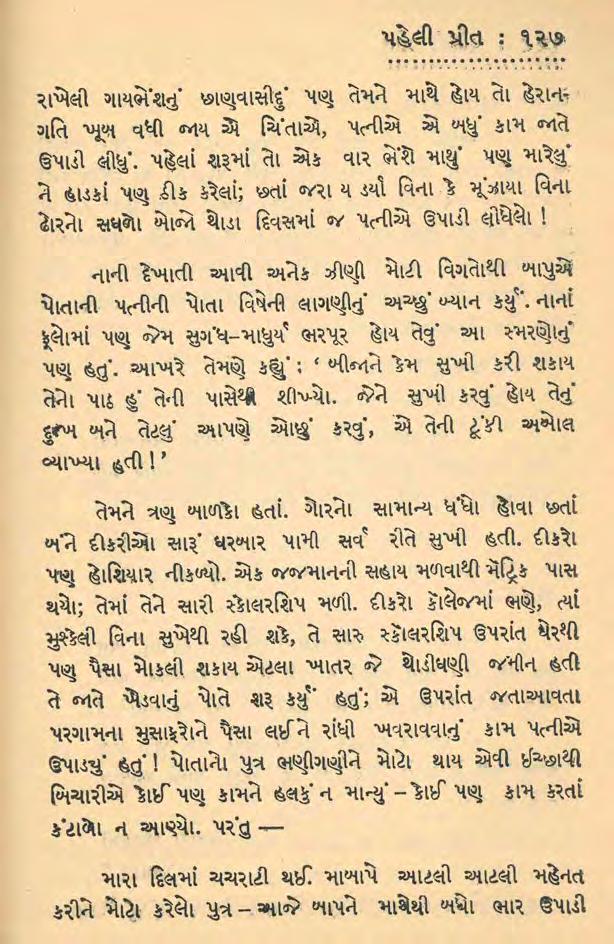 પહેલી પ્રીત : ૧૨૭
રાખેલી ગાયભેંશનું છાણવાસીદું પણ તેમને માથે હોય તો હેરાન-
ગતિ ખૂબ વધી જાય એ ચિંતાએ, પત્નીએ એ બધું કામ જાતે
ઉપાડી લીધું. પહેલાં શરૂમાં તો એક વાર ભેંશે માથું પણ મારેલું
ને હાડકાં પણ ઠીક કરેલાં; છતાં જરા ય ડર્યા વિના કે મૂંઝાયા વિના
ઢોરનો સઘળો બોજો થોડા દિવસમાં જ પત્નીએ ઉપાડી લીધેલો !
નાની દેખાતી આવી અનેક ઝીણી મોટી વિગતોથી બાપુએ
પોતાની પત્નીની પોતા વિષેની લાગણીનું અચ્છું બ્યાન કર્યું. નાનાં
ફૂલોમાં પણ જેમ સુગંધ-માધુર્ય ભરપૂર હોય તેવું આ સ્મરણોનું
પણ હતું. આખરે તેમણે કહ્યું : ‘ બીજાને કેમ સુખી કરી શકાય
તેનો પાઠ હું તેની પાસેથી શીખ્યો. જેને સુખી કરવું હોય તેનું
દુઃખ બને તેટલું આપણે ઓછું કરવું, એ તેની ટૂંકી અબોલ
વ્યાખ્યા હતી ! ’
તેમને ત્રણ બાળકો હતાં. ગોરનો સામાન્ય ધંધો હોવા છતાં
બંને દીકરીઓ સારૂં ઘરબાર પામી સર્વ રીતે સુખી હતી. દીકરો
પણ હોશિયાર નીકળ્યો. એક જજમાનની સહાય મળવાથી મૅટ્રિક પાસ
થયો; તેમાં તેને સારી સ્કોલરશિપ મળી. દીકરો કૉલેજમાં ભણે, ત્યાં
મુશ્કેલી વિના સુખેથી રહી શકે, તે સારુ સ્કૉલરશિપ ઉપરાંત ઘેરથી
પણ પૈસા મોકલી શકાય એટલા ખાતર જે થોડીઘણી જમીન હતી
તે જાતે ખેડવાનું પોતે શરૂ કર્યું હતું; એ ઉપરાંત જતાઆવતા
પરગામના મુસાફરોને પૈસા લઈને રાંધી ખવરાવવાનું કામ પત્નીએ
ઉપાડ્યું હતું ! પોતાનો પુત્ર ભણીગણીને મોટો થાય એવી ઈચ્છાથી
બિચારીએ કોઈ પણ કામને હલકું ન માન્યું – કોઈ પણ કામ કરતાં
કંટાળો ન આણ્યો. પરંતુ —
મારા દિલમાં ચચરાટી થઈ. માબાપે આટલી આટલી મહેનત
કરીને મોટો કરેલો પુત્ર – આજે બાપને માથેથી બધો ભાર ઉપાડી